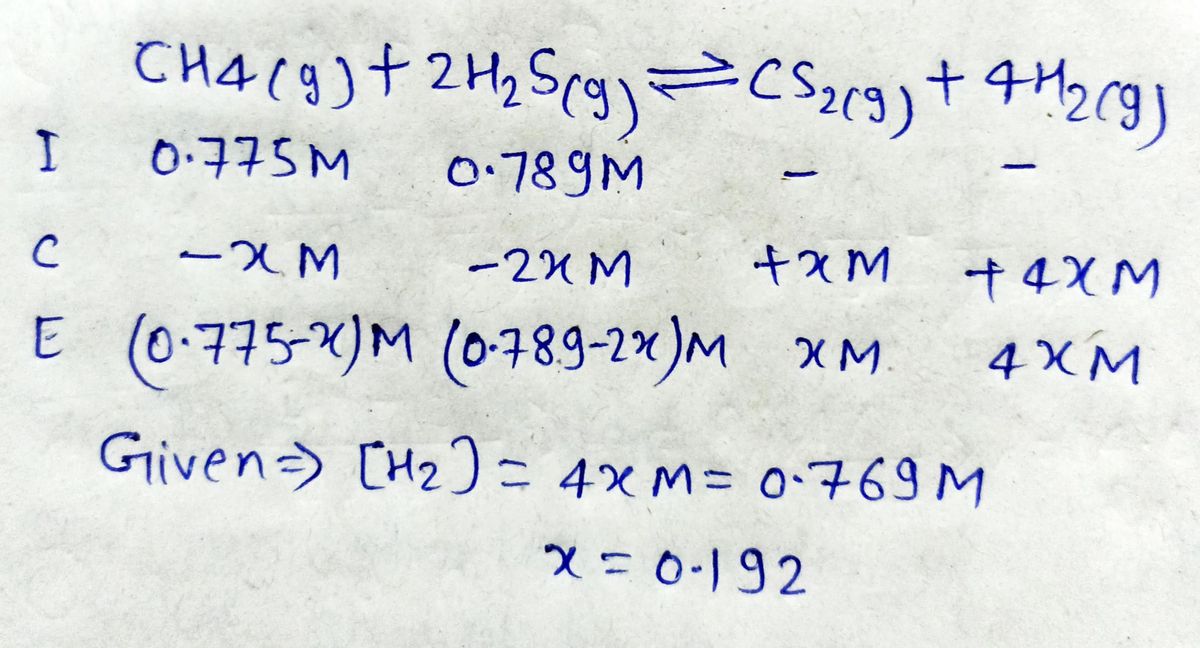 CH4(g) + 2H₂S(g) ⇌ CS₂(g) + 4H₂(g)
I 0.775M 0.789M - -
C -x M -2x M +x M +4x M
E (0.775-x)M (0.789-2x)M x M 4x M
Given ⇒ [H₂] = 4x M = 0.769 M
x = 0.192